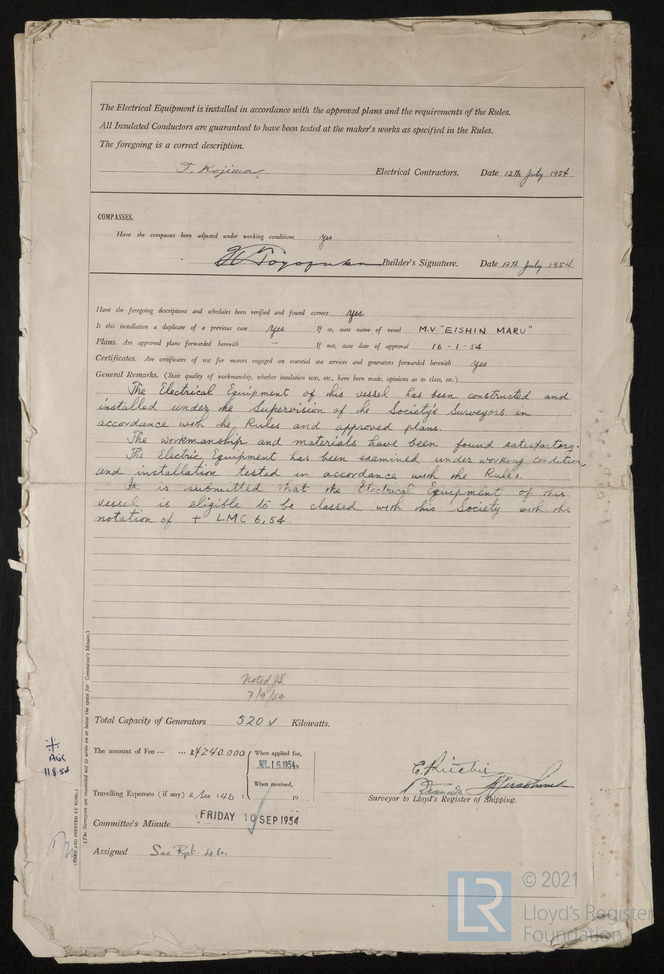 The Electrical Equipment is installed in accordance with the approved plans and the requirements of the Rules.
All Insulated Conductors are guaranteed to have been tested at the maker's works as specified in the Rules.
The foregoing is a correct description.
T. Kojima Electrical Contractors. Date 12th July 1954
COMPASSES.
Have the compasses been adjusted under working conditions yes
Builder's Signature. Date 12th July 1954
Have the foregoing descriptions and schedules been verified and found correct yes.
Is this installation a duplicate of a previous case yes If so, state name of vessel M.V "EISHIN MARU"
Plans. Are approved plans forwarded herewith - If not, state date of approval 16-1-54
Certificates. Are certificates of test for motors engaged on essential sea services and generators forwarded herewith yes
General Remarks. (State quality of workmanship, whether insulation tests, etc., have been made, opinions as to class, etc.)
The Electrical Equipment of this vessel has been constructed and
installed under the Supervision of the Society's Surveyors in
accordance with the Rules and approved plans.
The workmanship and materials have been found satisfactory.
The Electric Equipment has been examined under working condition,
and installation tested in accordance with the Rules.
It is submitted that the Electrical Equipment of this
vessel is eligible to be classed with this Society with the
notation of + LMC 6,54.
Noted
7/9/54
Total Capacity of Generators 520 ✓ Kilowatts.
The amount of Fee ... ... ¥240.000 When applied for,
JUL 16 1954
When received,
Travelling Expenses (if any) 19
Surveyor to Lloyd's Register of Shipping.
Committee's Minute FRIDAY 10 SEP 1954
Assigned See Rpt.
(The Surveyors are requested not to write on or below the space for Committee's Minute.)
AGC
11.8.54
© 2021
LR
Lloyd's Register
Foundation